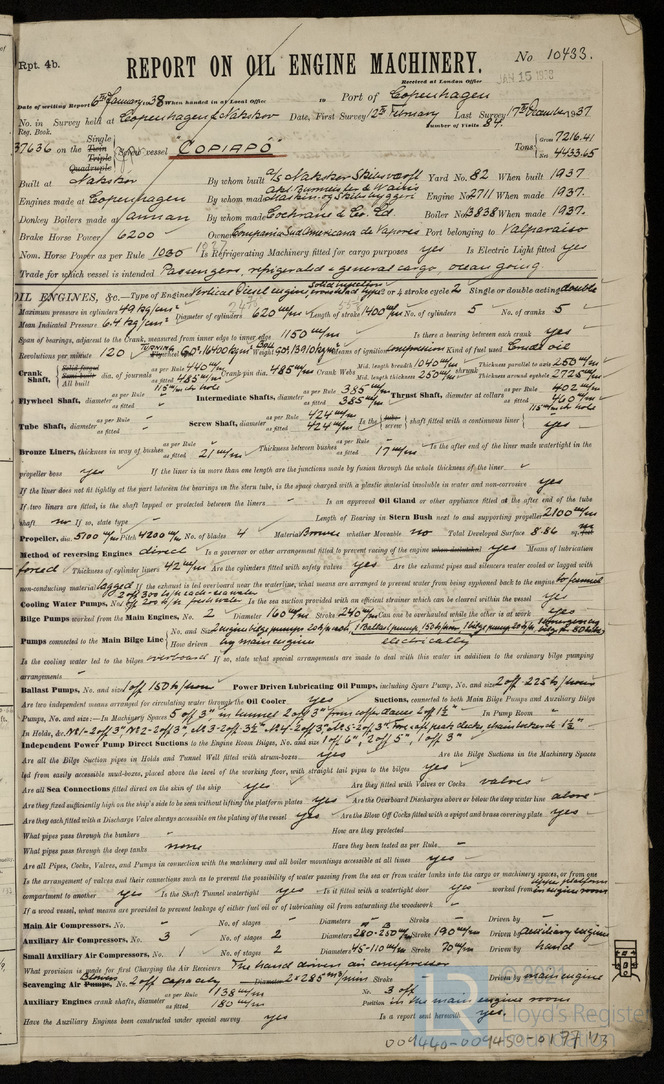 Rpt. 4b.
REPORT ON OIL ENGINE MACHINERY.
No 10433.
Received at London Office JAN 15 1938
Date of writing Report 6th January 1938 When handed in at Local Office 10 Port of Copenhagen
No. in Survey held at Copenhagen & Nakskov Date, First Survey 12th February Last Survey 17th December 1937
Reg. Book. Number of Visits 84.
37636 on the Single Twin Triple Quadruple Screw vessel "COPIAPÓ" Tons Gross 7216.41 Net 4433.65
Built at Nakskov By whom built A/S Nakskov Skibsværft Yard No. 82 When built 1937
Engines made at Copenhagen By whom made Akts. Burmeister & Wain's Maskin og Skibsbyggeri Engine No. 2711 When made 1937.
Donkey Boilers made at Annan By whom made Cochrane & Co. Ld. Boiler No. 13838 When made 1937.
Brake Horse Power 6200 Owners Compania Sud Americana de Vapores Port belonging to Valparaiso
Nom. Horse Power as per Rule 1030 1037 Is Refrigerating Machinery fitted for cargo purposes yes Is Electric Light fitted yes
Trade for which vessel is intended Passengers, refrigerated & general cargo, ocean going.
OIL ENGINES, &c.—Type of Engines Vertical Diesel engine, Solid injection 2 or 4 stroke cycle 2 Single or double acting double
Maximum pressure in cylinders 49 kg/cm² Diameter of cylinders 620 m/m Length of stroke 1400 m/m No. of cylinders 5 No. of cranks 5
Mean Indicated Pressure 6.4 kg/cm²
Span of bearings, adjacent to the Crank, measured from inner edge to inner edge 1150 m/m Is there a bearing between each crank yes
Revolutions per minute 120 Turning Flywheel GD² 16400 kgm² Weight GD² 13910 kgm² Means of ignition compression Kind of fuel used Crude oil
Crank Shaft, Solid forged Semi built All built dia. of journals as per Rule 440 m/m as fitted 485 m/m 115 m/m ch hole Crank pin dia. 485 m/m Crank Webs Mid. length breadth 1040 m/m Mid. length thickness 250 m/m shrunk Thickness parallel to axis 250 m/m Thickness around eyehole 272.5 m/m
Flywheel Shaft, diameter as per Rule as fitted Intermediate Shafts, diameter as per Rule 385 m/m as fitted 385 m/m Thrust Shaft, diameter at collars as per Rule 402 m/m as fitted 460 m/m 115 m/m ch hole
Tube Shaft, diameter as per Rule as fitted Screw Shaft, diameter as per Rule 424 m/m as fitted 424 m/m Is the tube screw shaft fitted with a continuous liner yes
Bronze Liners, thickness in way of bushes as per Rule as fitted 21 m/m Thickness between bushes as per Rule as fitted 17 m/m Is the after end of the liner made watertight in the
propeller boss yes If the liner is in more than one length are the junctions made by fusion through the whole thickness of the liner
If the liner does not fit tightly at the part between the bearings in the stern tube, is the space charged with a plastic material insoluble in water and non-corrosive yes
If two liners are fitted, is the shaft lapped or protected between the liners - Is an approved Oil Gland or other appliance fitted at the after end of the tube
shaft no If so, state type - Length of Bearing in Stern Bush next to and supporting propeller 2100 m/m
Propeller, dia. 5100 m/m Pitch 4200 m/m No. of blades 4 Material Bronze whether Moveable no Total Developed Surface 8.86 sq. feet
Method of reversing Engines direct Is a governor or other arrangement fitted to prevent racing of the engine when declutched yes Means of lubrication
forced Thickness of cylinder liners 42 m/m Are the cylinders fitted with safety valves yes Are the exhaust pipes and silencers water cooled or lagged with
non-conducting material lagged If the exhaust is led overboard near the waterline, what means are arranged to prevent water from being syphoned back to the engine to funnel
Cooling Water Pumps, No. 2 off 300 t/h each sea water 2 off 200 t/h freshwater Is the sea suction provided with an efficient strainer which can be cleared within the vessel yes
Bilge Pumps worked from the Main Engines, No. 2 Diameter 160 m/m Stroke 240 m/m Can one be overhauled while the other is at work yes
Pumps connected to the Main Bilge Line No. and Size 2 engine bilge pumps 20 t/h each, 1 Ballast pump 150 t/hour, 1 bilge pump 20 t/h, 1 Emergency bilge p. 50 t/h
How driven by main engines electrically
Is the cooling water led to the bilges overboard If so, state what special arrangements are made to deal with this water in addition to the ordinary bilge pumping
arrangements -
Ballast Pumps, No. and size 1 off 150 t/hour Power Driven Lubricating Oil Pumps, including Spare Pump, No. and size 2 off 225 t/hour
Are two independent means arranged for circulating water through the Oil Cooler yes Suctions, connected to both Main Bilge Pumps and Auxiliary Bilge
Pumps, No. and size:—In Machinery Spaces 5 off 3" in tunnel 2 off 3" from cofferdams 2 off 1½" In Pump Room -
In Holds, &c. No 1-2 off 3" No 2-2 off 3", No 3-2 off 3½" No 4-2 off 3" No 5-2 off 3".
Independent Power Pump Direct Suctions to the Engine Room Bilges, No. and size 1 off 6", 2 off 5", 1 off 3"
Are all the Bilge Suction pipes in Holds and Tunnel Well fitted with strum-boxes yes Are the Bilge Suctions in the Machinery Spaces
led from easily accessible mud-boxes, placed above the level of the working floor, with straight tail pipes to the bilges yes
Are all Sea Connections fitted direct on the skin of the ship yes Are they fitted with Valves or Cocks valves
Are they fixed sufficiently high on the ship's side to be seen without lifting the platform plates yes Are the Overboard Discharges above or below the deep water line above
Are they each fitted with a Discharge Valve always accessible on the plating of the vessel yes Are the Blow Off Cocks fitted with a spigot and brass covering plate yes
What pipes pass through the bunkers - How are they protected -
What pipes pass through the deep tanks none Have they been tested as per Rule -
Are all Pipes, Cocks, Valves, and Pumps in connection with the machinery and all boiler mountings accessible at all times yes
Is the arrangement of valves and their connections such as to prevent the possibility of water passing from the sea or from water tanks into the cargo or machinery spaces, or from one
compartment to another yes Is the Shaft Tunnel watertight yes Is it fitted with a watertight door yes worked from upper platform in engine room
If a wood vessel, what means are provided to prevent leakage of either fuel oil or of lubricating oil from saturating the woodwork -
Main Air Compressors, No. - No. of stages - Diameters - Stroke - Driven by -
Auxiliary Air Compressors, No. 3 No. of stages 2 Diameters 280-250 m/m Stroke 190 m/m Driven by auxiliary engine
Small Auxiliary Air Compressors, No. 1 No. of stages 2 Diameters 45-110 m/m Stroke 70 m/m Driven by hand
What provision is made for first Charging the Air Receivers The hand driven air compressor
Scavenging Air Pumps, Blowers No. 2 off capacity Diameter 2 x 285 m³/min. Stroke Driven by main engine
Auxiliary Engines crank shafts, diameter as per Rule 138 m/m as fitted 180 m/m No. 3 off Position in the main engine room
Have the Auxiliary Engines been constructed under special survey yes Is a report sent herewith yes.
Lloyd's Register
Foundation
009440-009450-0177 1/3